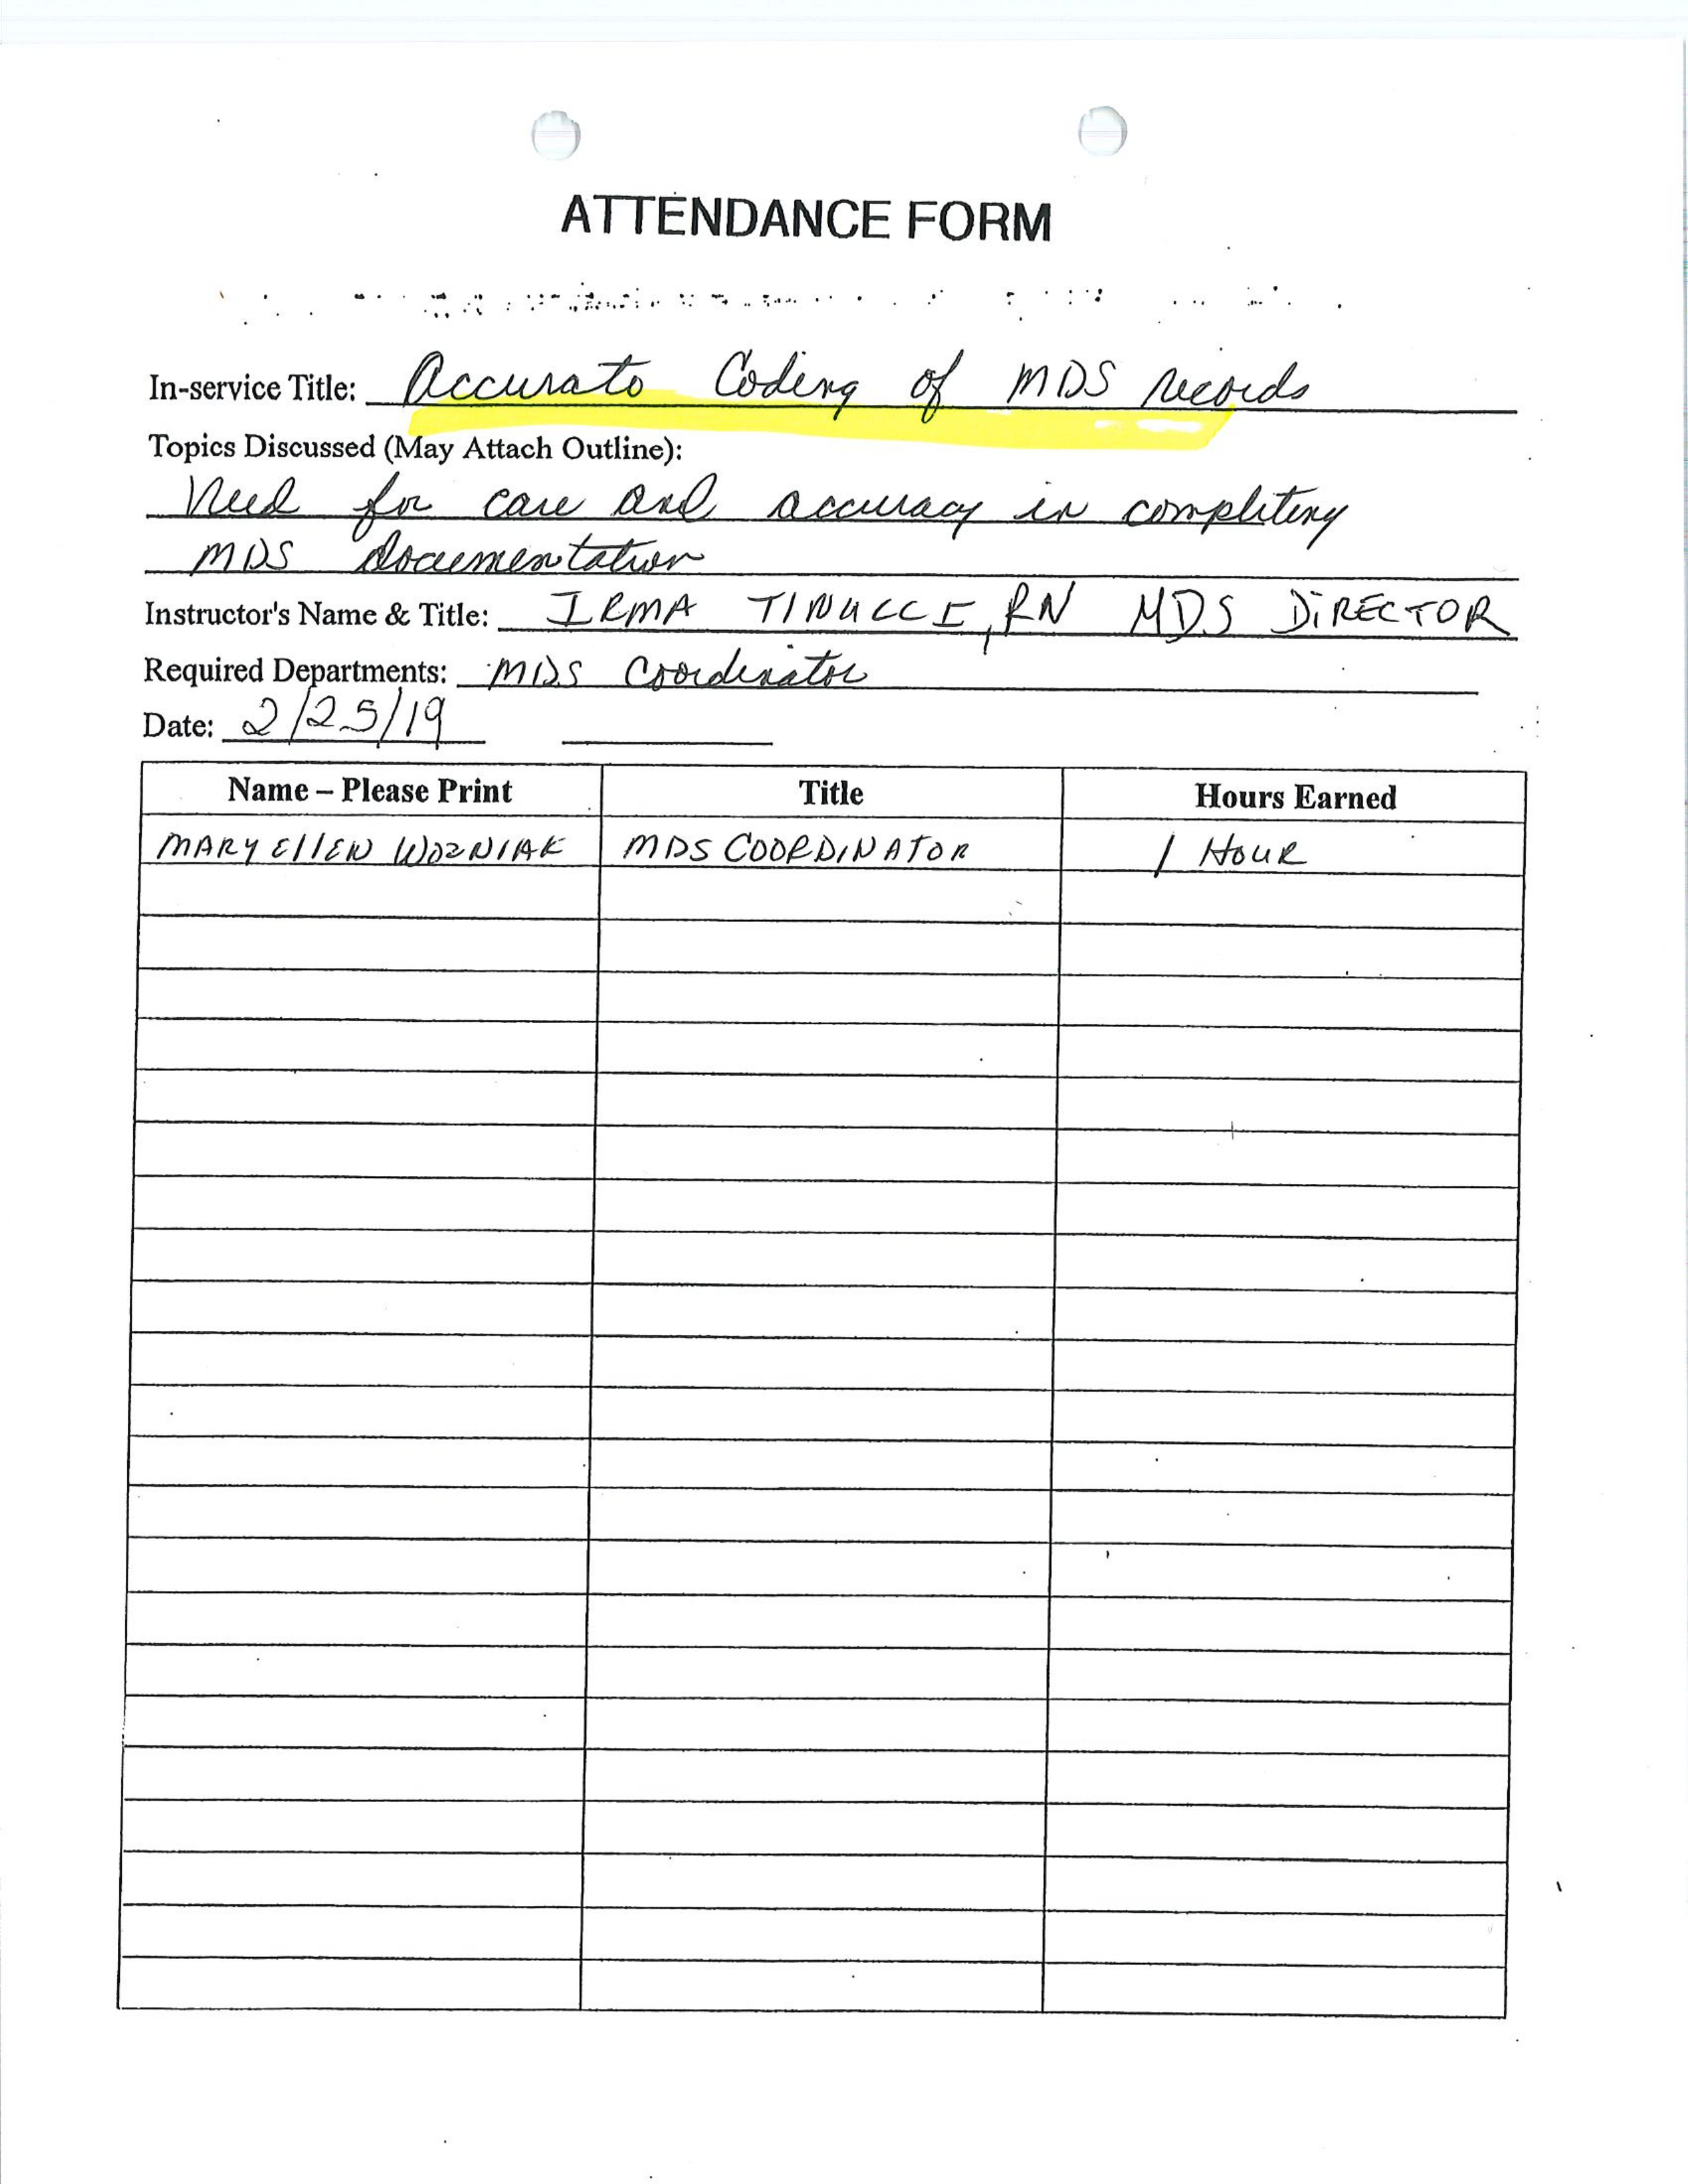 ATTENDANCE FORM
In-service Title: Accurate Coding of MDS records
Topics Discussed (May Attach Outline):
Need for care and accuracy in completing
MDS documentation
Instructor's Name & Title: IRMA TINUCCI, RN MDS DIRECTOR
Required Departments: MDS Coordinator
Date: 2/25/19
Name – Please Print Title Hours Earned
MARY EllEN WOZNIAK MDS COORDINATOR 1 HOUR